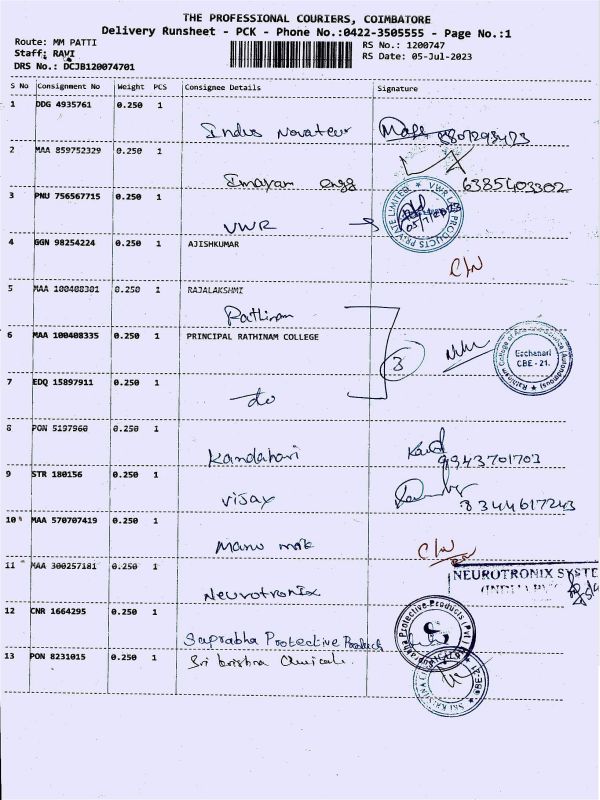 THE PROFESSIONAL COURIERS, COIMBATORE
Delivery Runsheet - PCK - Phone No.:0422-3505555 - Page No.:1
Route: MM PATTI RS No.: 1200747
Staff: RAVI RS Date: 05-Jul-2023
DRS No.: DCJB120074701
S No Consignment No Weight PCS Consignee Details Signature
1 DDG 4935761 0.250 1
Indus Novateur
2 MAA 859752329 0.250 1
Imayam engg 6385403302
3 PNU 756567715 0.250 1
VWR
VWR LAB PRODUCTS PRIVATE LIMITED
4 GGN 98254224 0.250 1 AJISHKUMAR
C/N
5 MAA 100408301 0.250 1 RAJALAKSHMI
Rathinam
6 MAA 100408335 0.250 1 PRINCIPAL RATHINAM COLLEGE
3
Eachanari
CBE - 21.
7 EDQ 15897911 0.250 1
do
8 PON 5197960 0.250 1
Kandahari 9943701703
9 STR 180156 0.250 1
Vijay 8344617243
10 MAA 570707419 0.250 1
C/N
11 MAA 300257181 0.250 1
Neurotronix
NEUROTRONIX SYSTE
12 CNR 1664295 0.250 1
Saprabha Protective Product
13 PON 8231015 0.250 1
Sri krishna Chemicals